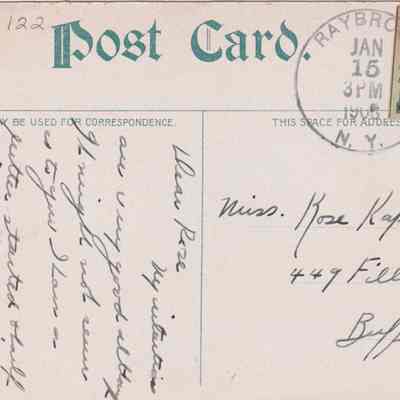 122
Post Card.
RAYBRO
JAN
15
3PM
190
N. Y.
Y BE USED FOR CORRESPONDENCE.
THIS SPACE FOR ADDRES
Dear Rose
My intentions
are very good altho
it might not seem
so to you I have a
letter started & half
Miss. Rose Kap
449 Fill
Buff